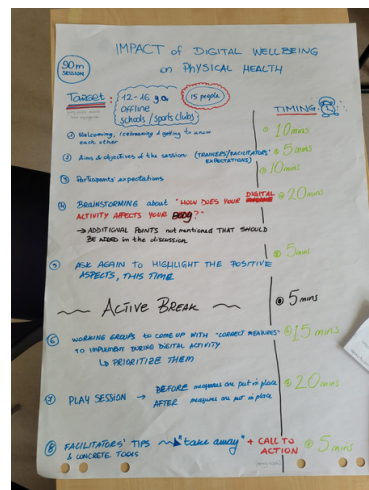 IMPACT of DIGITAL WELLBEING
on PHYSICAL HEALTH
90m
SESSION
TARGET:
12-16 y.o.
OFFLINE
schools/sports clubs
15 people
TIMING
① Welcoming, icebreaking & getting to know
each other
10 mins
② Aims & objectives of the session (TRAINERS/FACILITATORS'
EXPECTATIONS)
5 mins
③ Participants expectations
10 mins
④ BRAINSTORMING about "HOW DOES YOUR DIGITAL
ACTIVITY AFFECTS YOUR BODY?"
20 mins
→ ADDITIONAL POINTS not mentioned THAT SHOULD
BE ADDED in the discussion
5 mins
⑤ ASK AGAIN TO HIGHLIGHT THE POSITIVE
ASPECTS, THIS TIME
~ ACTIVE BREAK ~
5 mins
⑥ WORKING GROUPS to COME UP WITH "CORRECT MEASURES"
TO IMPLEMENT DURING DIGITAL ACTIVITY
↳ PRIORITIZE THEM
15 mins
⑦ PLAY SESSION → BEFORE measures are put in place
AFTER measures are put in place
20 mins
⑧ FACILITATORS' TIPS → "take away" + CALL TO
& CONCRETE TOOLS ACTION
5 mins